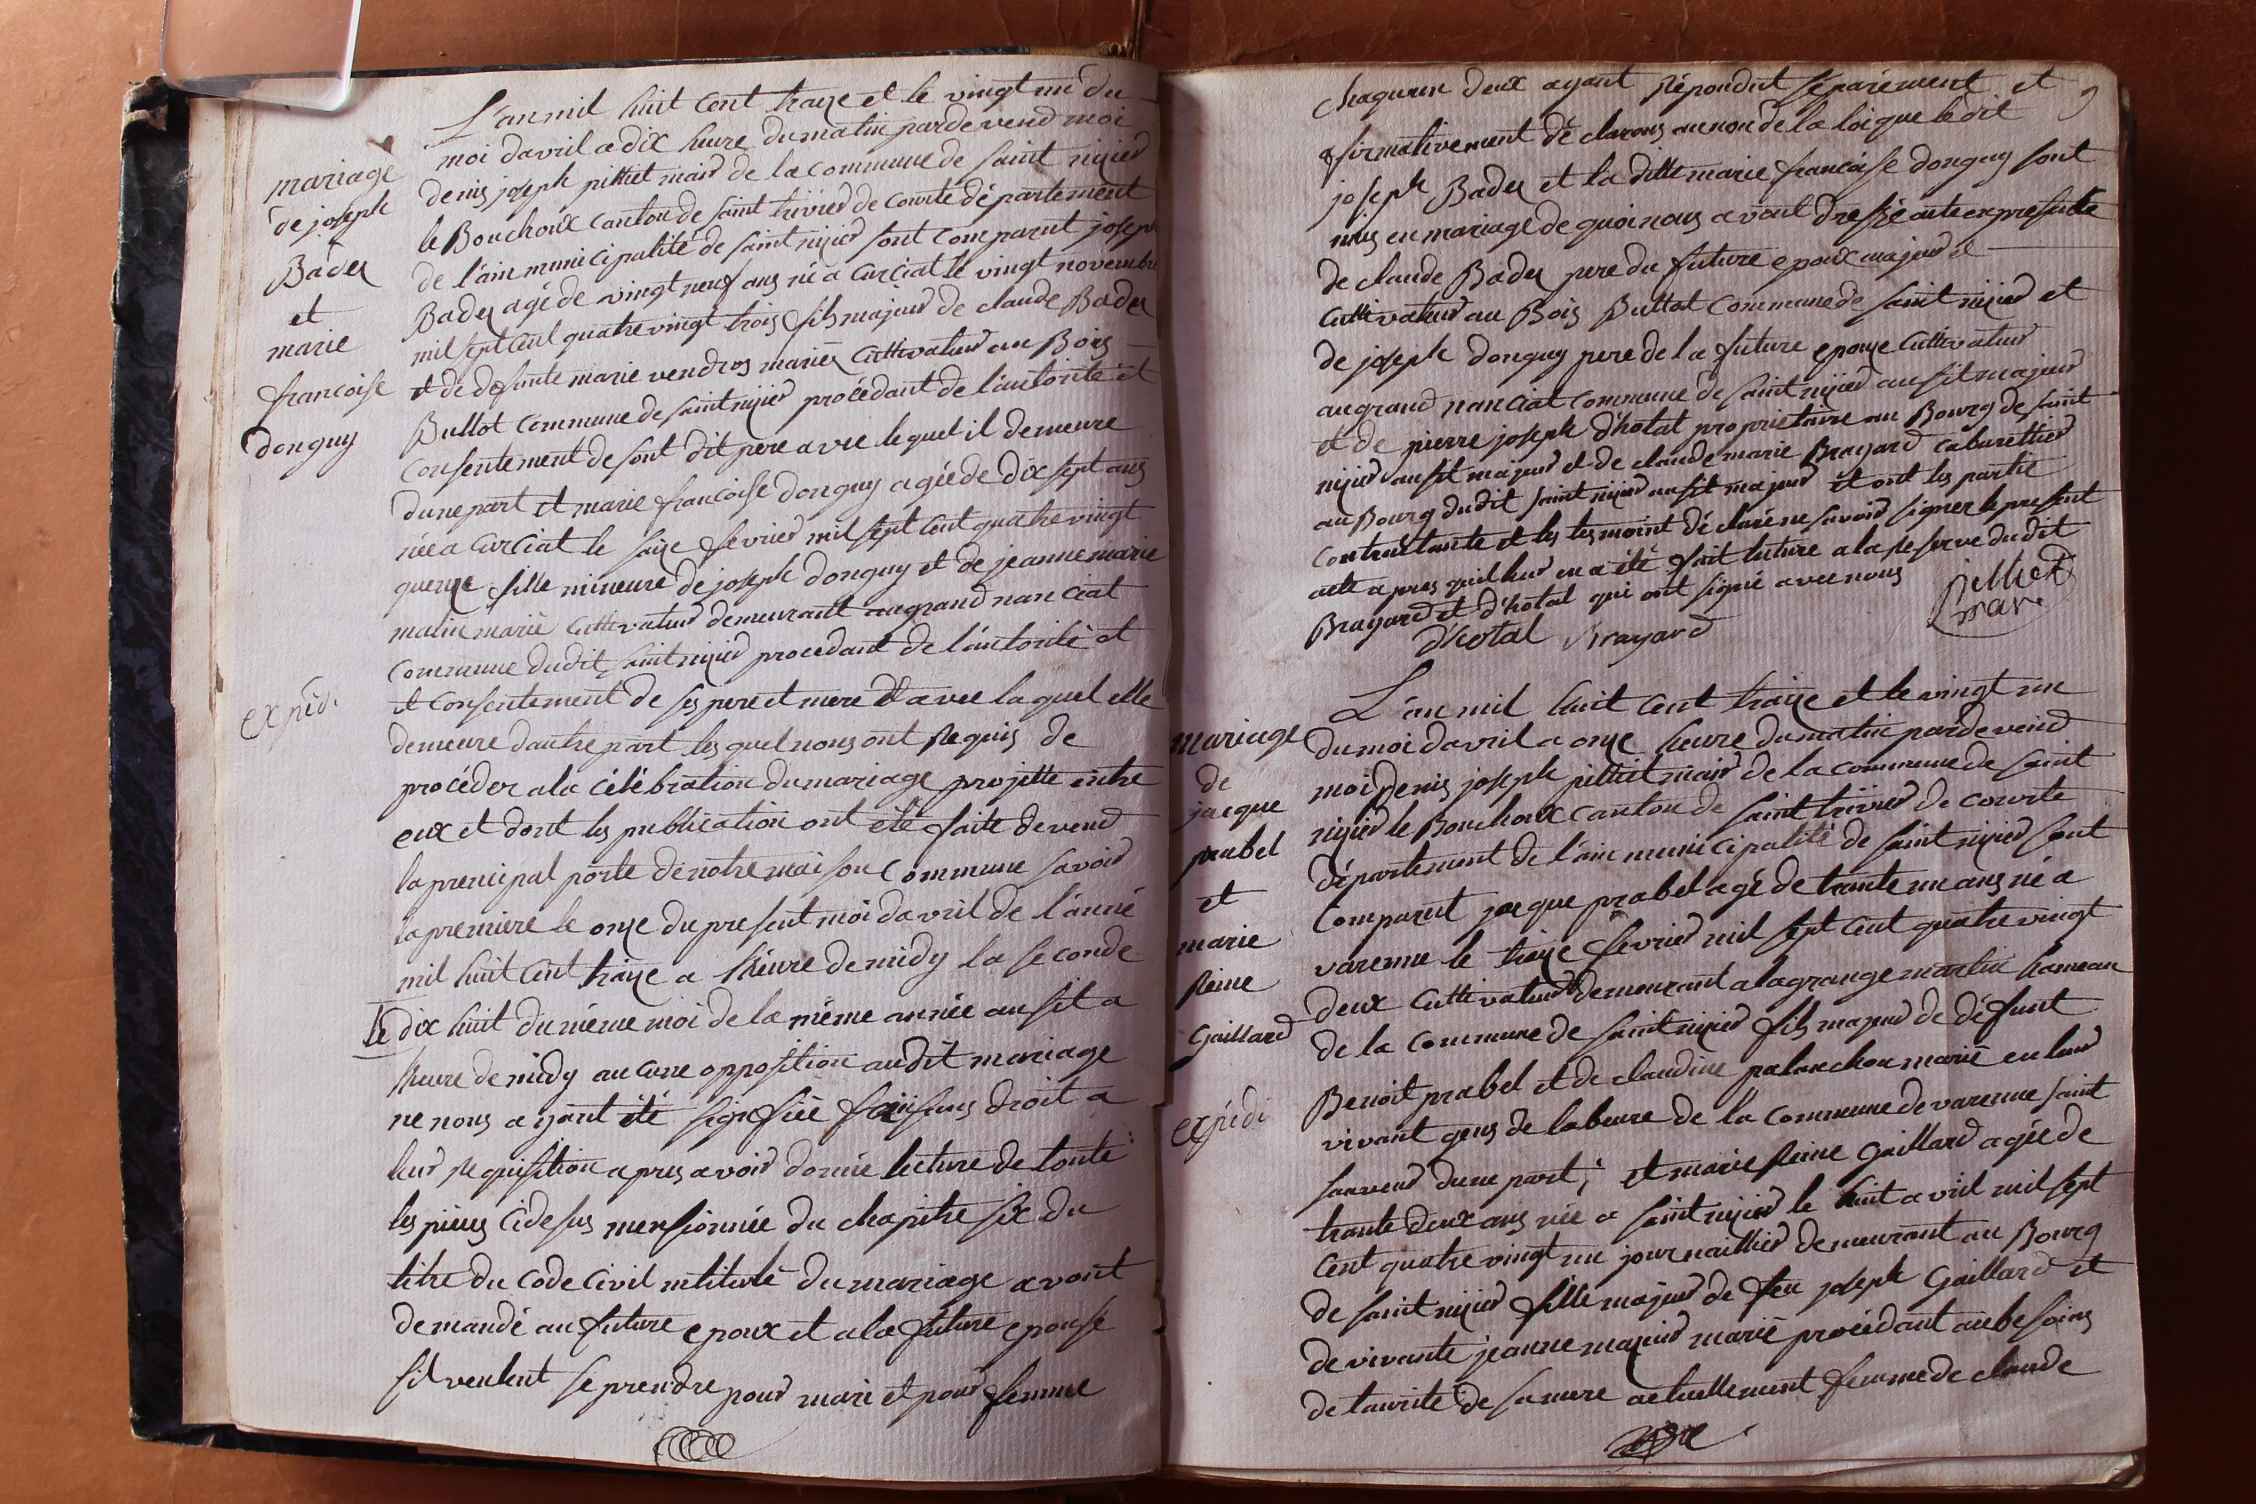 mariage
de joseph
Badez
et
marie
francoise
donguy
expédi
L'an mil huit cent traize et le vingt un du
moi davril a dix heure du matin pardevend moi
denis joseph pilliet maire de la commune de saint nizier
le Bouchoux canton de saint trivier de courte département
de l'ain municipalité de saint nizier sont comparut joseph
Badez agé de vingt neuf ans né a Curciat le vingt novembre
mil sept cent quatre vingt trois fils majeur de claude Badez
et de defunte marie vendros mariés Cultivateur au Bois
Bullot commune de saint nizier procédant de l'autorité et
Consentement de sont dit pere avec lequel il demeure
dune part et marie francoise donguy agée de dix sept ans
née a Curciat le saize fevrier mil sept cent quatre vingt
quenze fille mineure de joseph donguy et de jeanne marie
matin marié Cultivateur demeurant au grand nanciat
commune dudit saint nizier procedant de l'autorité et
et Consentement de ses pere et mere et avec laquel elle
demeure dautre part lesquel nous ont Requis de
procéder a la célébration du mariage projette entre
eux et dont les publication ont été faite devend
la prencipal porte de notre maison Commune savoir
la premiere le onze du present moi davril de l'anné
mil huit cent traize a l'héure de midy la seconde
le dix huit du méme moi de la méme année ausit a
heure de midy aucune opposition audit mariage
ne nous ayant été signfiée faisans droit a
leur Requisition apres avoir donnée lecture de toute
les pieces cidesus mensionnée du chapitre six du
titre du Code Civil intitulé du mariage avont
demandé au future epoux et a la future epouse
sil veulent se prendre pour mari et pour femme
9
chaquun deux ayant Répondut séparément et
afirmativement déclarons aunon de la loi que le dit
joseph Badez et la ditte marie francoise donguy sont
unis en mariage de quoi nous avont dressé acte en presence
de claude Badez pere du future epoux majeur et
Cultivateur au Bois Bullot Commune de saint nizier et
de joseph donguy pere de la future epouze Cultivateur
au grand nanciat commune de saint nizier ausit majeur
et de pierre joseph d'hotal propriétaire au Bourg de saint
nizier ausit majeur et de claude marie Brayard cabarettier
au Bourg dudit saint nizier ausit majeur et ont les partie
Contractante et les tesmoint déclaré ne savoir signer le present
acte apres quil leur en a été fait lecture a la Reserve dudit
Brayard et d'hotal qui ont signé avec nous
pilliet
maire
d'hotal Brayard
mariage
de
jacque
prabel
et
marie
Reine
Gaillard
expédi
L'an mil huit cent traize et le vingt un
du moi davril a onze heure du matin pardevend
moi denis joseph pilliet maire de la commune de saint
nizier le Bouchoux canton de saint trivier de courte
département de l'ain municipalité de saint nizier sont
Comparut jacque prabel agé de trante un ans né a
varenne le traize fevrier mil sept cent quatre vingt
deux Cultivateur demeurant a la grange martin hameau
de la commune de saint nizier fils majeur de défunt
Benoit prabel et de claudine palanchon marié en leur
vivant gens de labeure de la commune de varenne saint
sauveur dune part ; et marie Reine Gaillard agée de
trante deux ans née a saint nizier le huit avril mil sept
Cent quatre vingt un journaillier demeurant au Bourg
de saint nizier fille majeur de feu joseph Gaillard et
de vivante jeanne mazuir marié procédant au besoins
de laurité de sa mere actuellement femme de claude